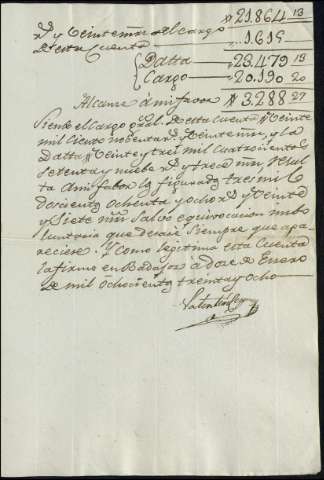 21.864 13
r.s y Veinte mrs. del cargo
de esta Cuenta 1.615
Datta 23.479 13
Cargo 20.190 20
Alcance á mi favor 3.288 27
Siendo el Cargo gral. de esta Cuenta Veinte
mil Ciento noventa r.s Veinte mrs, y la
Datta Veinte y tres mil Cuatrocientos
Setenta y nueve r.s y trece mrs Resul
ta á mi fabor los figurados tres mil
doscientos ochenta y ocho r.s y Veinte
y Siete mrs. Salvo equivocacion imbo
luntaria que desaré Siempre que apa-
reciere. Y Como legitima esta Cuenta
la firmo en Badajoz á doce de Enero
de mil ochocientos treinta y ocho
Valentin